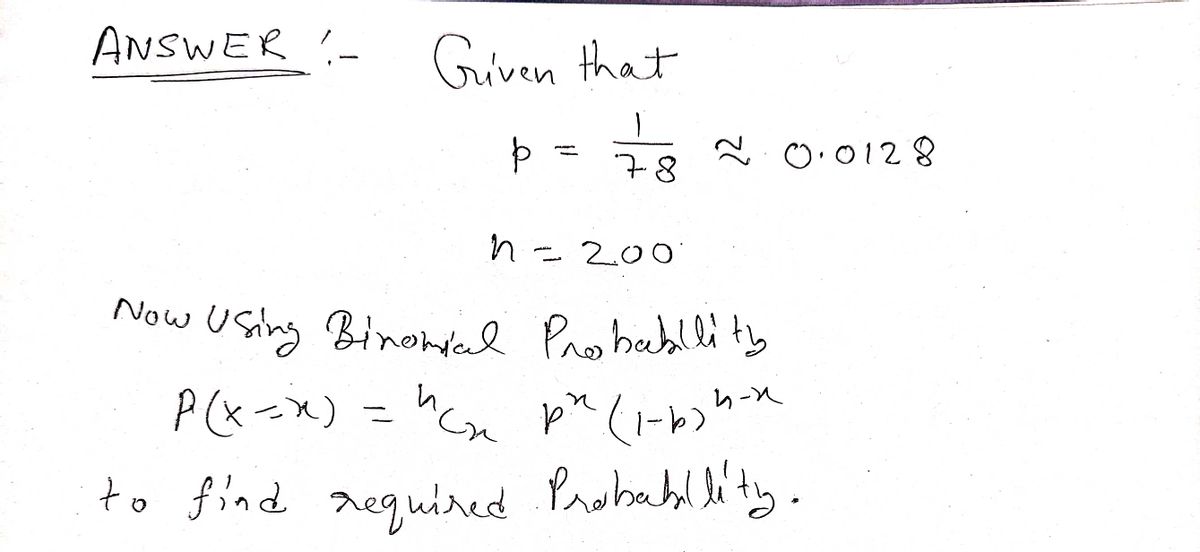 ANSWER :- Given that
p = 1/78 ≈ 0.0128
n = 200
Now Using Binomial Probability
P(x=x) = ⁿCₓ pˣ (1-p)ⁿ⁻ˣ
to find required Probability.